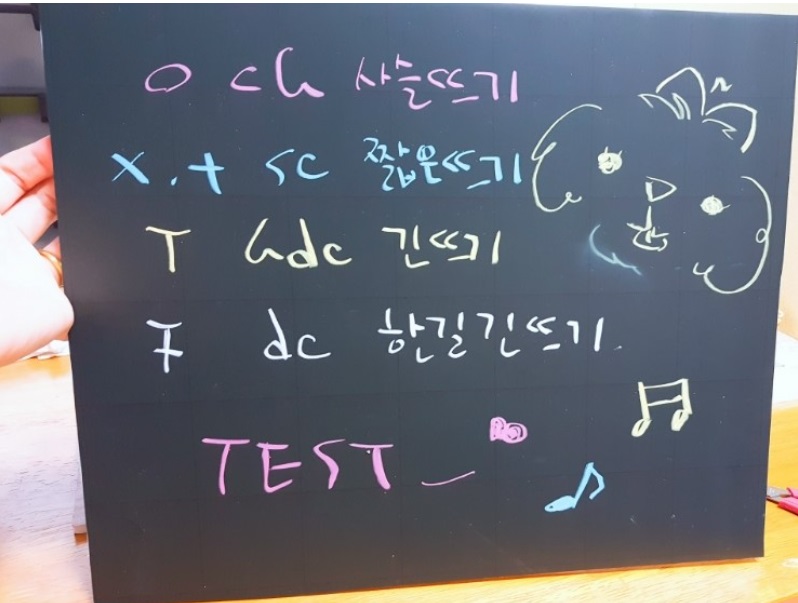 O ch 사슬뜨기
X, + sc 짧은뜨기
T hdc 긴뜨기
Ŧ dc 한길긴뜨기.
TEST_